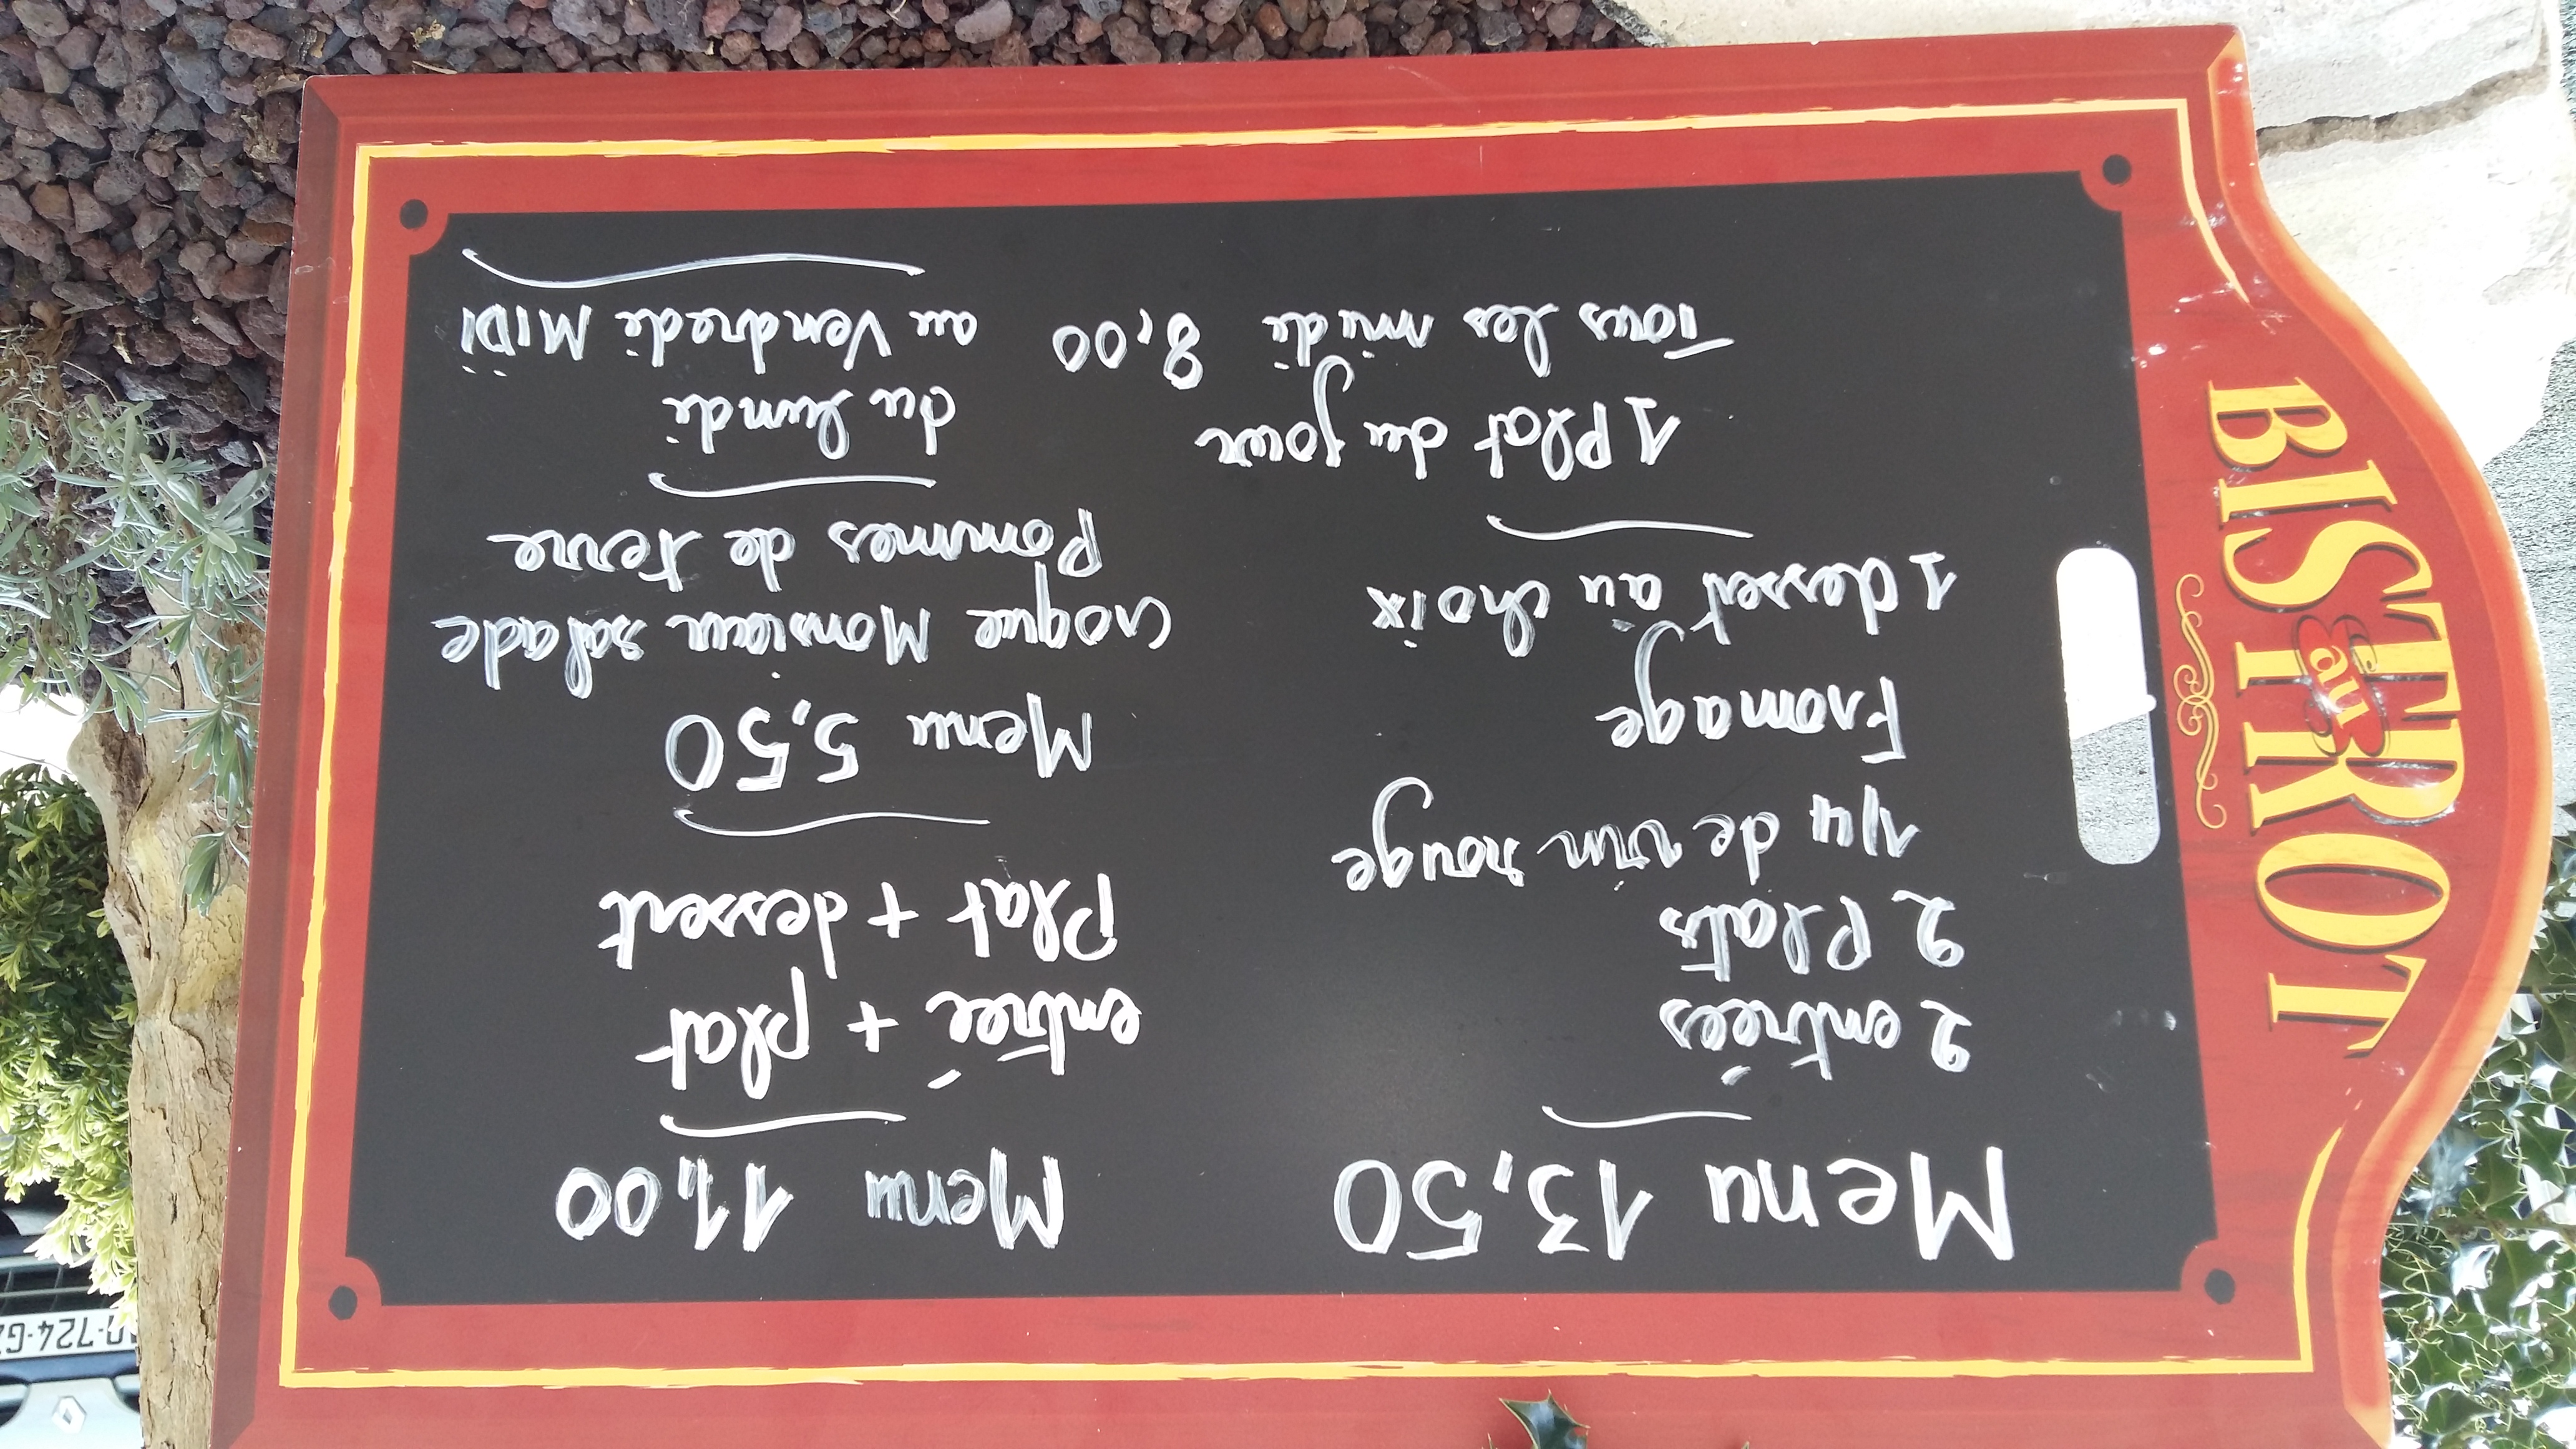 Au
BISTROT
Menu 13,50
2 entrées
2 Plats
1/4 de vin rouge
Fromage
1 dessert au choix
1 Plat du jour
Tous les midi 8,00
Menu 11,00
entrée + plat
Plat + dessert
Menu 5,50
croque Monsieur salade
Pommes de terre
du lundi
au Vendredi MIDI